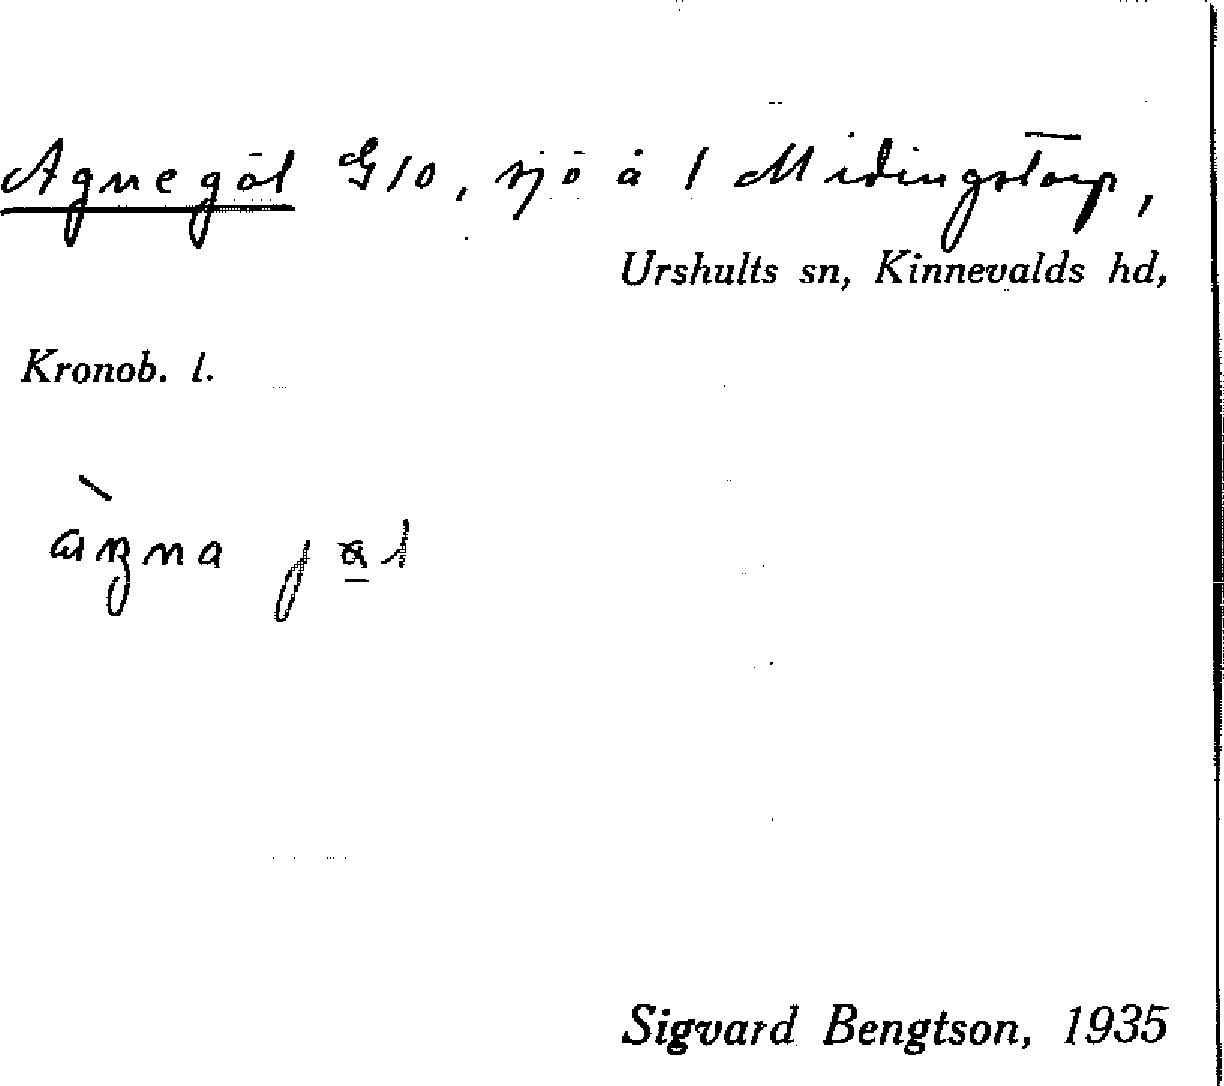 Agnegöl G10, sjö å 1 Midingstorp,
Urshults sn, Kinnevalds hd,
Kronob. l.
Sigvard Bengtson, 1935